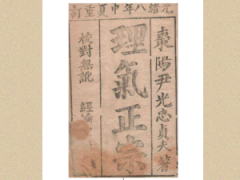 光緒八年中夏重訂
棗陽尹光忠貞夫著
理氣正宗
校對無訛
經